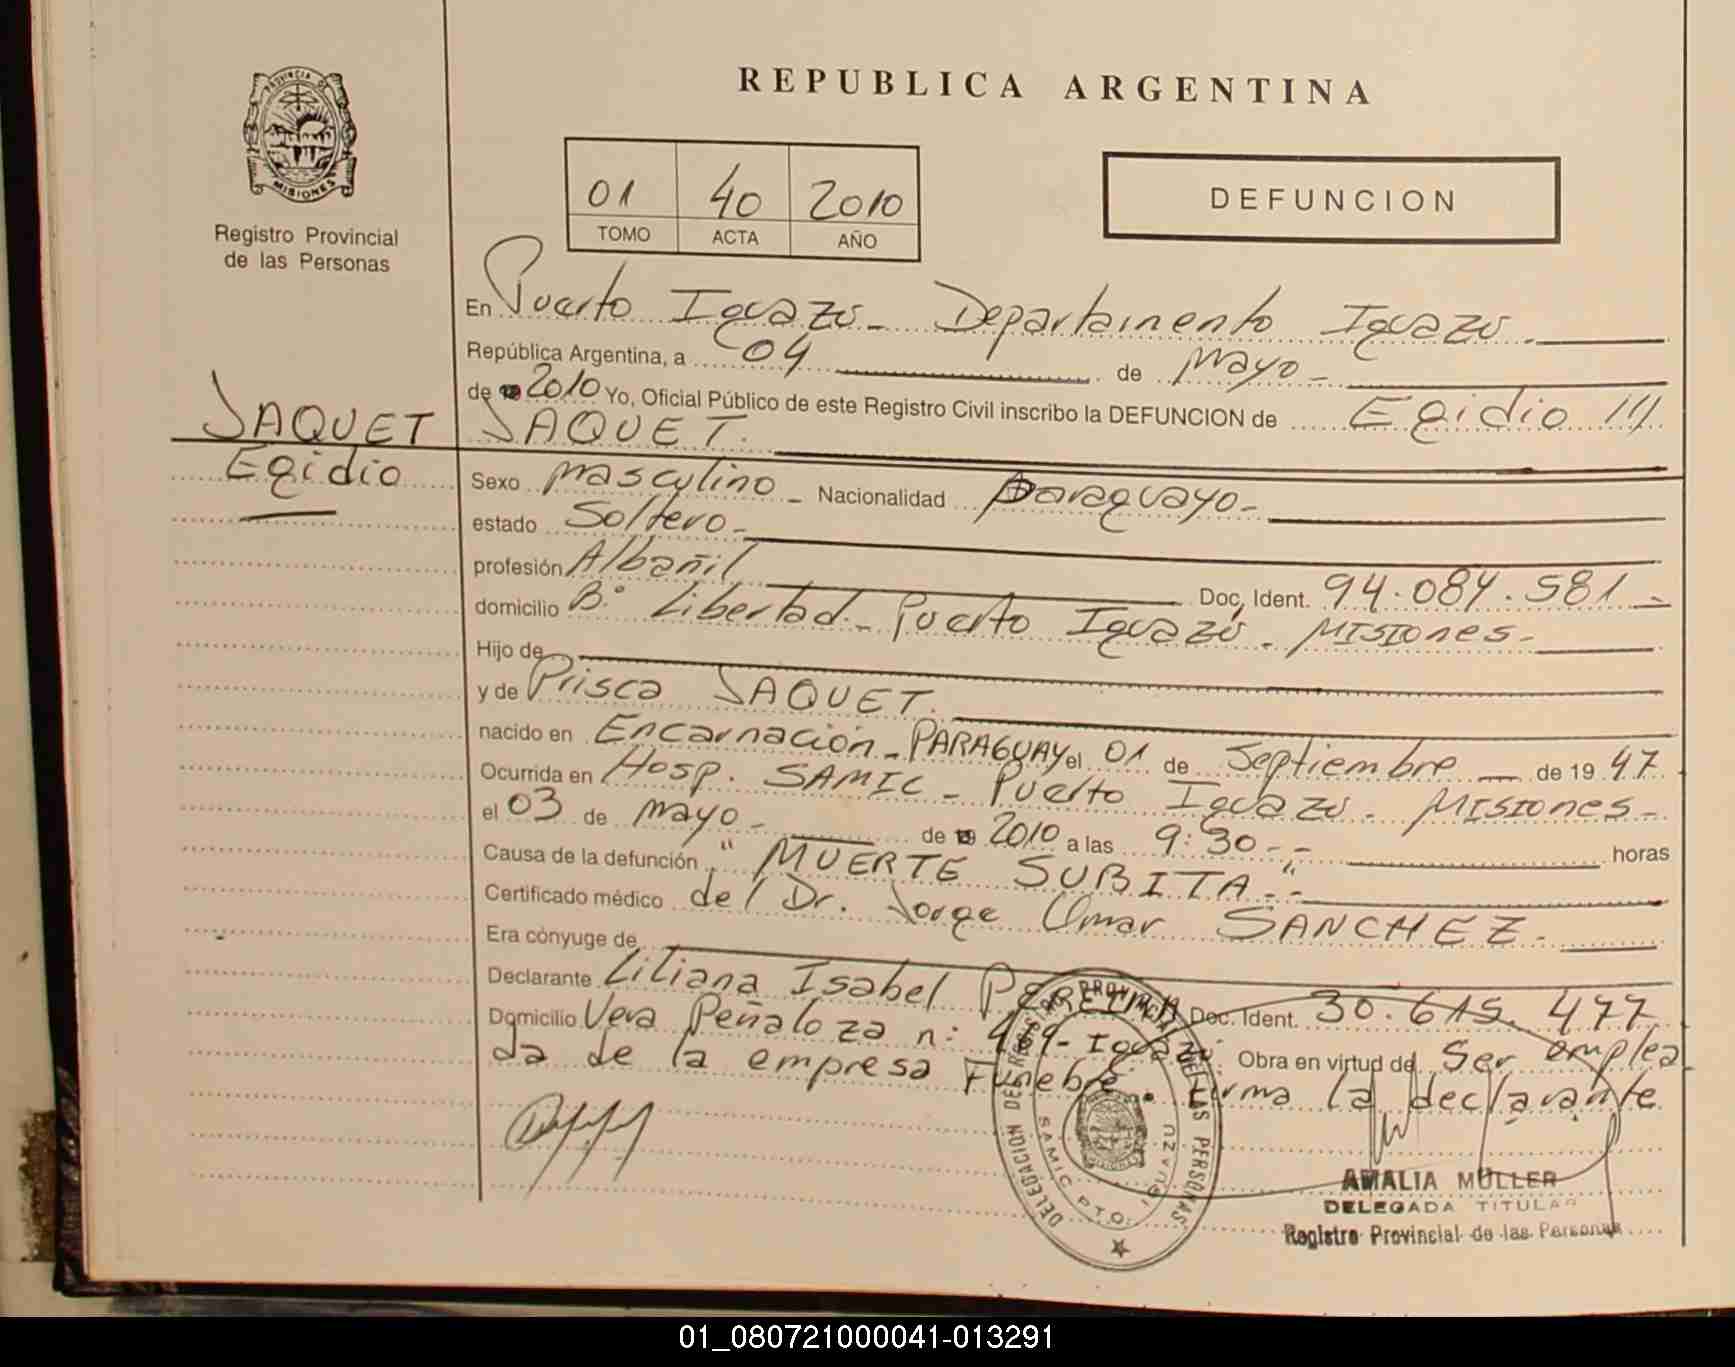 PROVINCIA DE
MISIONES
Registro Provincial
de las Personas
REPUBLICA ARGENTINA
01 40 2010
TOMO ACTA AÑO
DEFUNCION
En Puerto Iguazú - Departamento Iguazú.
República Argentina, a 04 de Mayo -
de 2010 Yo, Oficial Público de este Registro Civil inscribo la DEFUNCION de Egidio
JAQUET.
JAQUET
Egidio
Sexo masculino - Nacionalidad paraguayo -
estado Soltero -
profesión Albañil Doc. Ident. 94.084.581 -
domicilio B° Libertad - Puerto Iguazú - MISIONES -
Hijo de
y de Prisca JAQUET.
nacido en Encarnación - PARAGUAY el 01 de Septiembre - de 19 47
Ocurrida en Hosp. SAMIC - Puerto Iguazú - MISIONES -
el 03 de mayo - de 2010 a las 9:30 - - horas
Causa de la defunción "MUERTE SUBITA - "-
Certificado médico del Dr. Jorge Omar SANCHEZ -
Era cónyuge de
Declarante Liliana Isabel Doc. Ident. 30.615.477
Domicilio Vera Peñaloza n: Obra en virtud de Ser emplea
da de la empresa Funebre. Firma la declarante
DELEGACION DEL REGISTRO PROVINCIAL DE LAS PERSONAS
SAMIC PTO. IGUAZU
AMALIA MULLER
DELEGADA TITULAR
Registro Provincial de las Personas
01_080721000041-013291